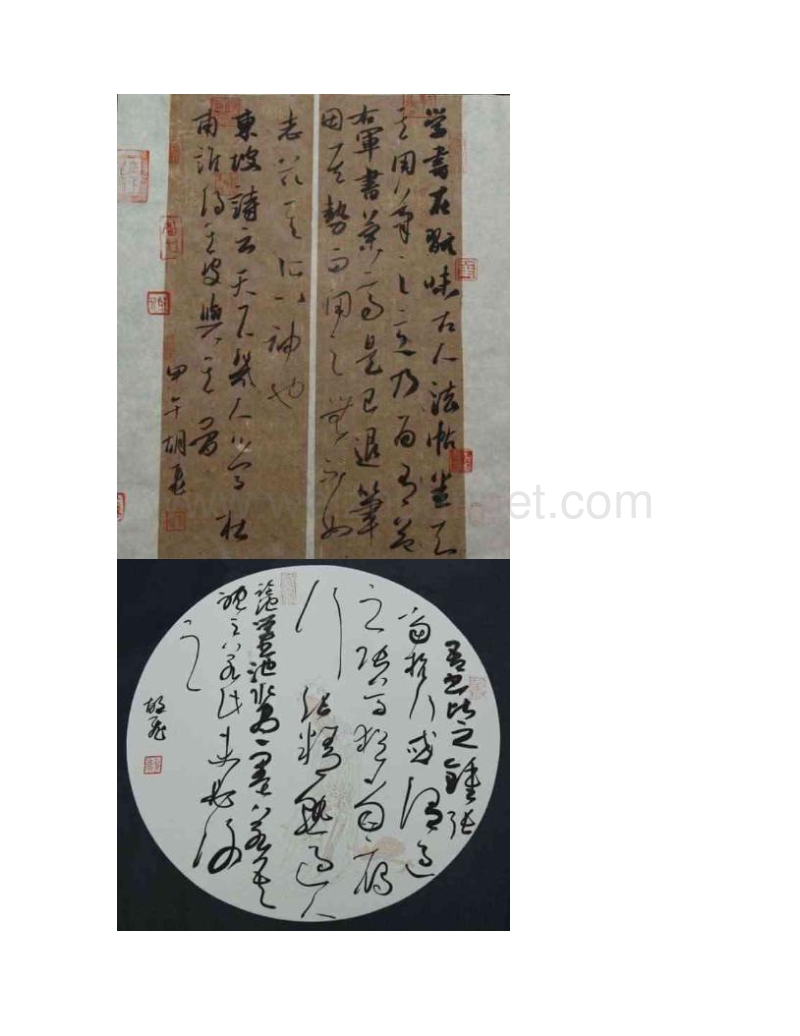 学書在翫味古人法帖悉知
其用筆之意乃為有益
右軍書蘭亭是已退筆
因其勢而用之無不如
志茲其所以神也
東坡詩云天下幾人學杜
甫誰得其皮與其骨
甲午胡飛
吾書比之鍾張
當抗行或謂過
之張草猶當雁
行張精熟過人
學書池水盡墨若吾
耽之若此未必後
之
胡飛